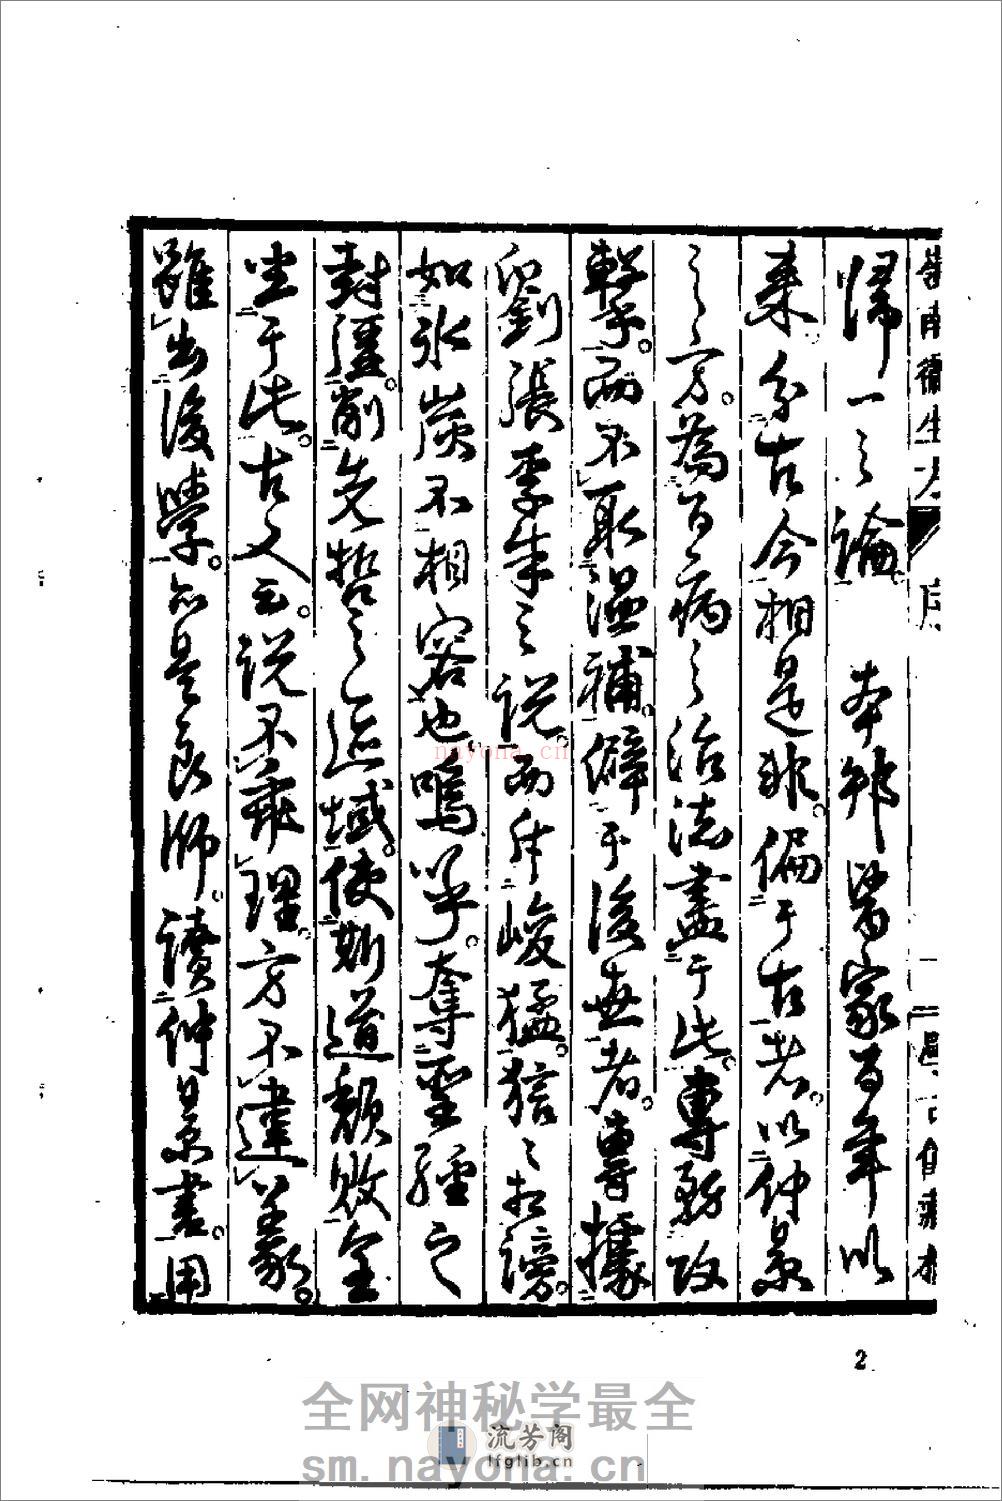 歸一之論　本邦醫家百年以
来分古今相是非。偏于古者。以仲景
之方。為百病之治法盡于此。專務攻
擊。而不取溫補。僻于後世者。專據
劉張李朱之說。而斥峻猛。狺々相謗。
如氷炭不相容也。嗚呼。奪聖經之
封疆。削先哲之區域。使斯道頹敗全
坐于此。古人云。說不乖理。方不違義。
雖出後學。亦是良師。讀仲景書。用
2
nayona.cn
全网神秘学最全
流芳阁
lfglib.cn
sm.nayona.cn